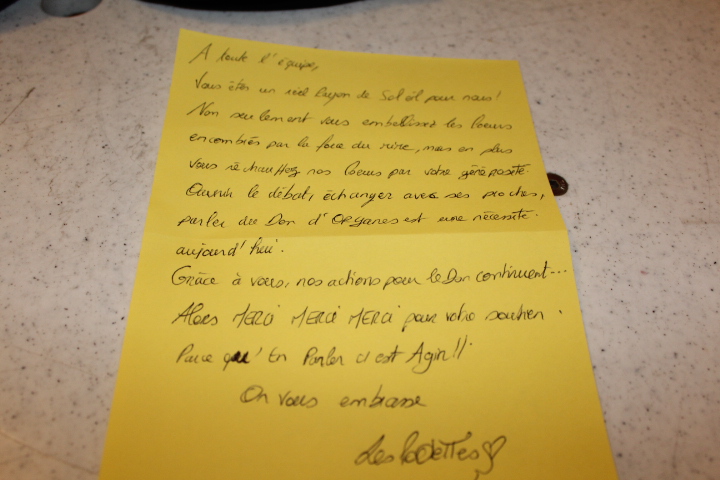 A toute l'équipe,
Vous êtes un réel Rayon de Soleil pour nous!
Non seulement vous embellissez les Coeurs
encombrés par la force du rire, mais en plus
vous réchauffez nos Coeurs par votre générosité.
Ouvrir le débat, échanger avec ses proches,
parler du Don d'ORganes est une nécessité.
aujourd'hui.
Grâce à vous, nos actions pour le Don continuent...
Alors MERCI MERCI MERCI pour votre soutien.
Parce qu'En Parler c'est Agir!!
On vous embrasse
Les